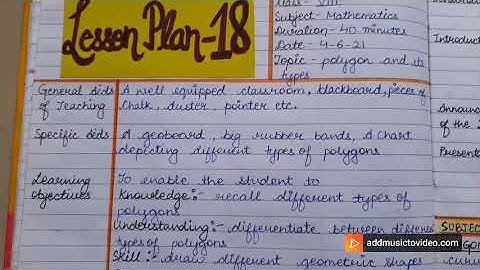 Lesson Plan-18
Class - VIII
Subject - Mathematics
Duration - 40 minutes
Date - 4-6-21
Topic - polygon and its
types
General Aids
of Teaching
A well equipped classroom, blackboard, pieces of
chalk, duster, pointer etc.
Specific Aids
A geoboard, big rubber bands, A chart
depicting different types of polygons
Learning
objectives
To enable the student to
Knowledge:- recall different types of
polygons
Understanding:- differentiate between differe
types of polygons
Skill:- draw different geometric shapes
Introduct
Announc
of the
Present
SUBJEC
addmusictovideo.com